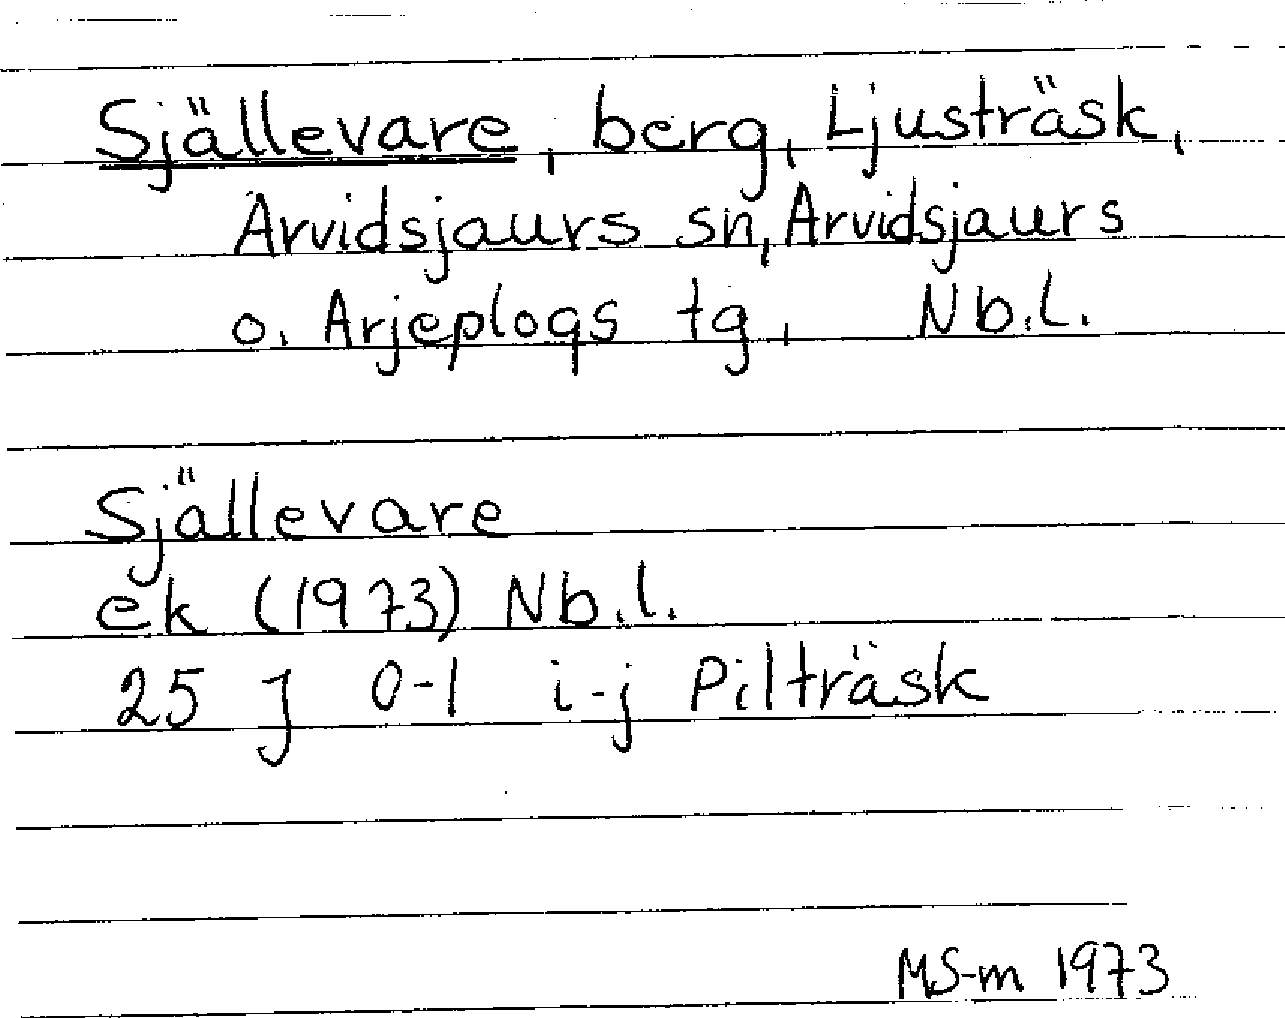 Själlevare, berg, Ljusträsk,
Arvidsjaurs sn, Arvidsjaurs
o. Arjeplogs tg, Nb.l.
Själlevare
ek (1973) Nb.l.
25 J 0-1 i-j Pilträsk
MS-m 1973